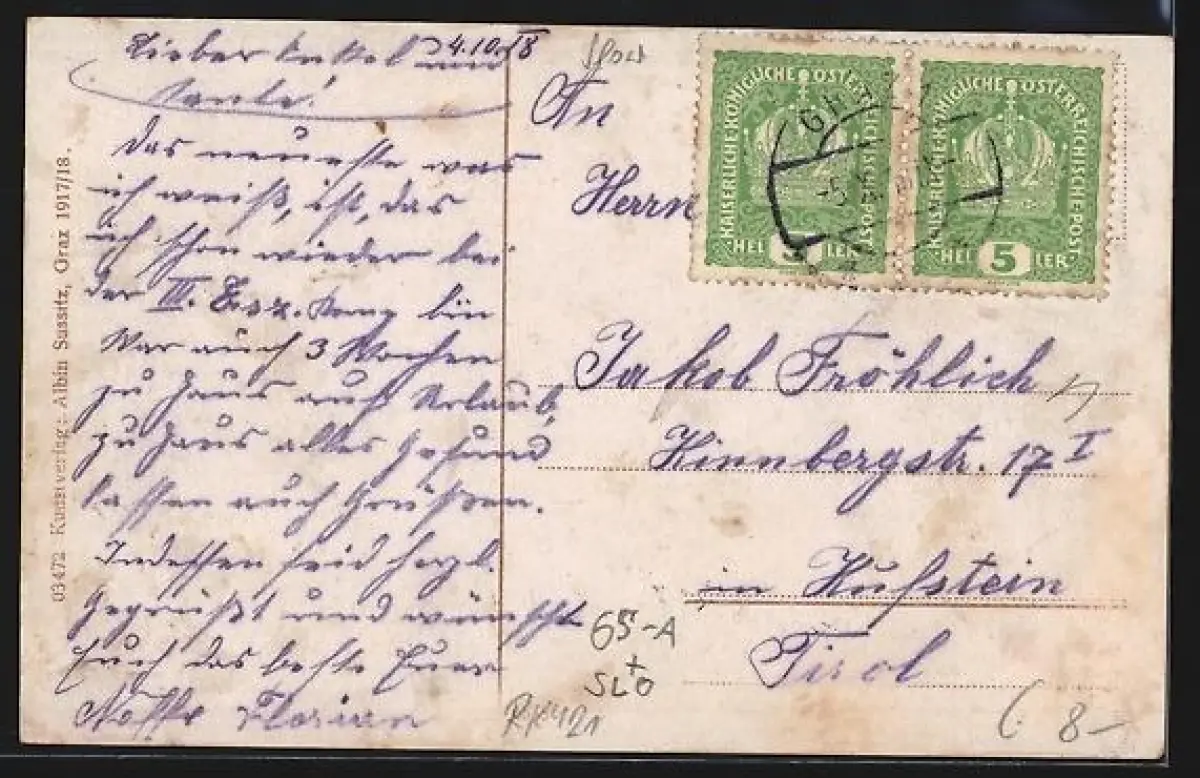 4.10.18
Lieber Onkel und
Tante!
Das neueste was
ich weiß, ist, das
ich schon wieder bei
der III. Ers. Komp bin
War auch 3 Wochen
zu Haus auf Urlaub,
zu Haus alles Gesund
lassen auch Grüßen.
Indessen seid herzl.
Gegrüßt und wünscht
Euch das beste Euer
Neffe Florian
03472 Kunstverlag: Albin Sussitz, Graz 1917/18.
An
Herrn
Jakob Fröhlich
Kinnbergstr. 17 I
in Kufstein
Tirol
KAISERLICHE KÖNIGLICHE ÖSTERREICHISCHE POST
HELLER
KAISERLICHE KÖNIGLICHE ÖSTERREICHISCHE POST
5 HELLER
65-A
+
SLO
8-